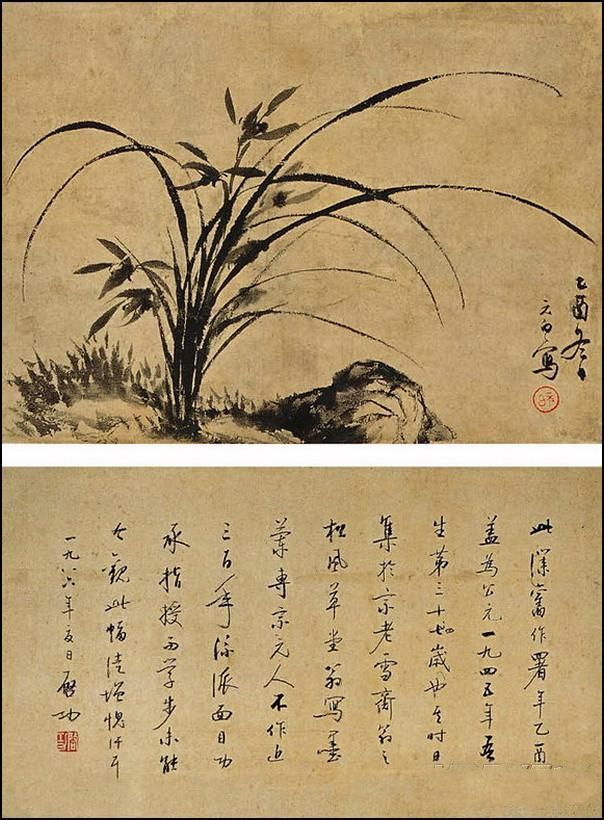 乙酉冬日
元白寫
此僕舊作署年乙酉
盖為公元一九四五年吾
生第三十四歲也其时日
集於宗老雪齋翁之
松風草堂翁寫墨
蘭專宗元人不作近
三百年流派面目功
承指授而学步未能
今觀此幅徒增愧汗耳
一九八六年夏日 啓功